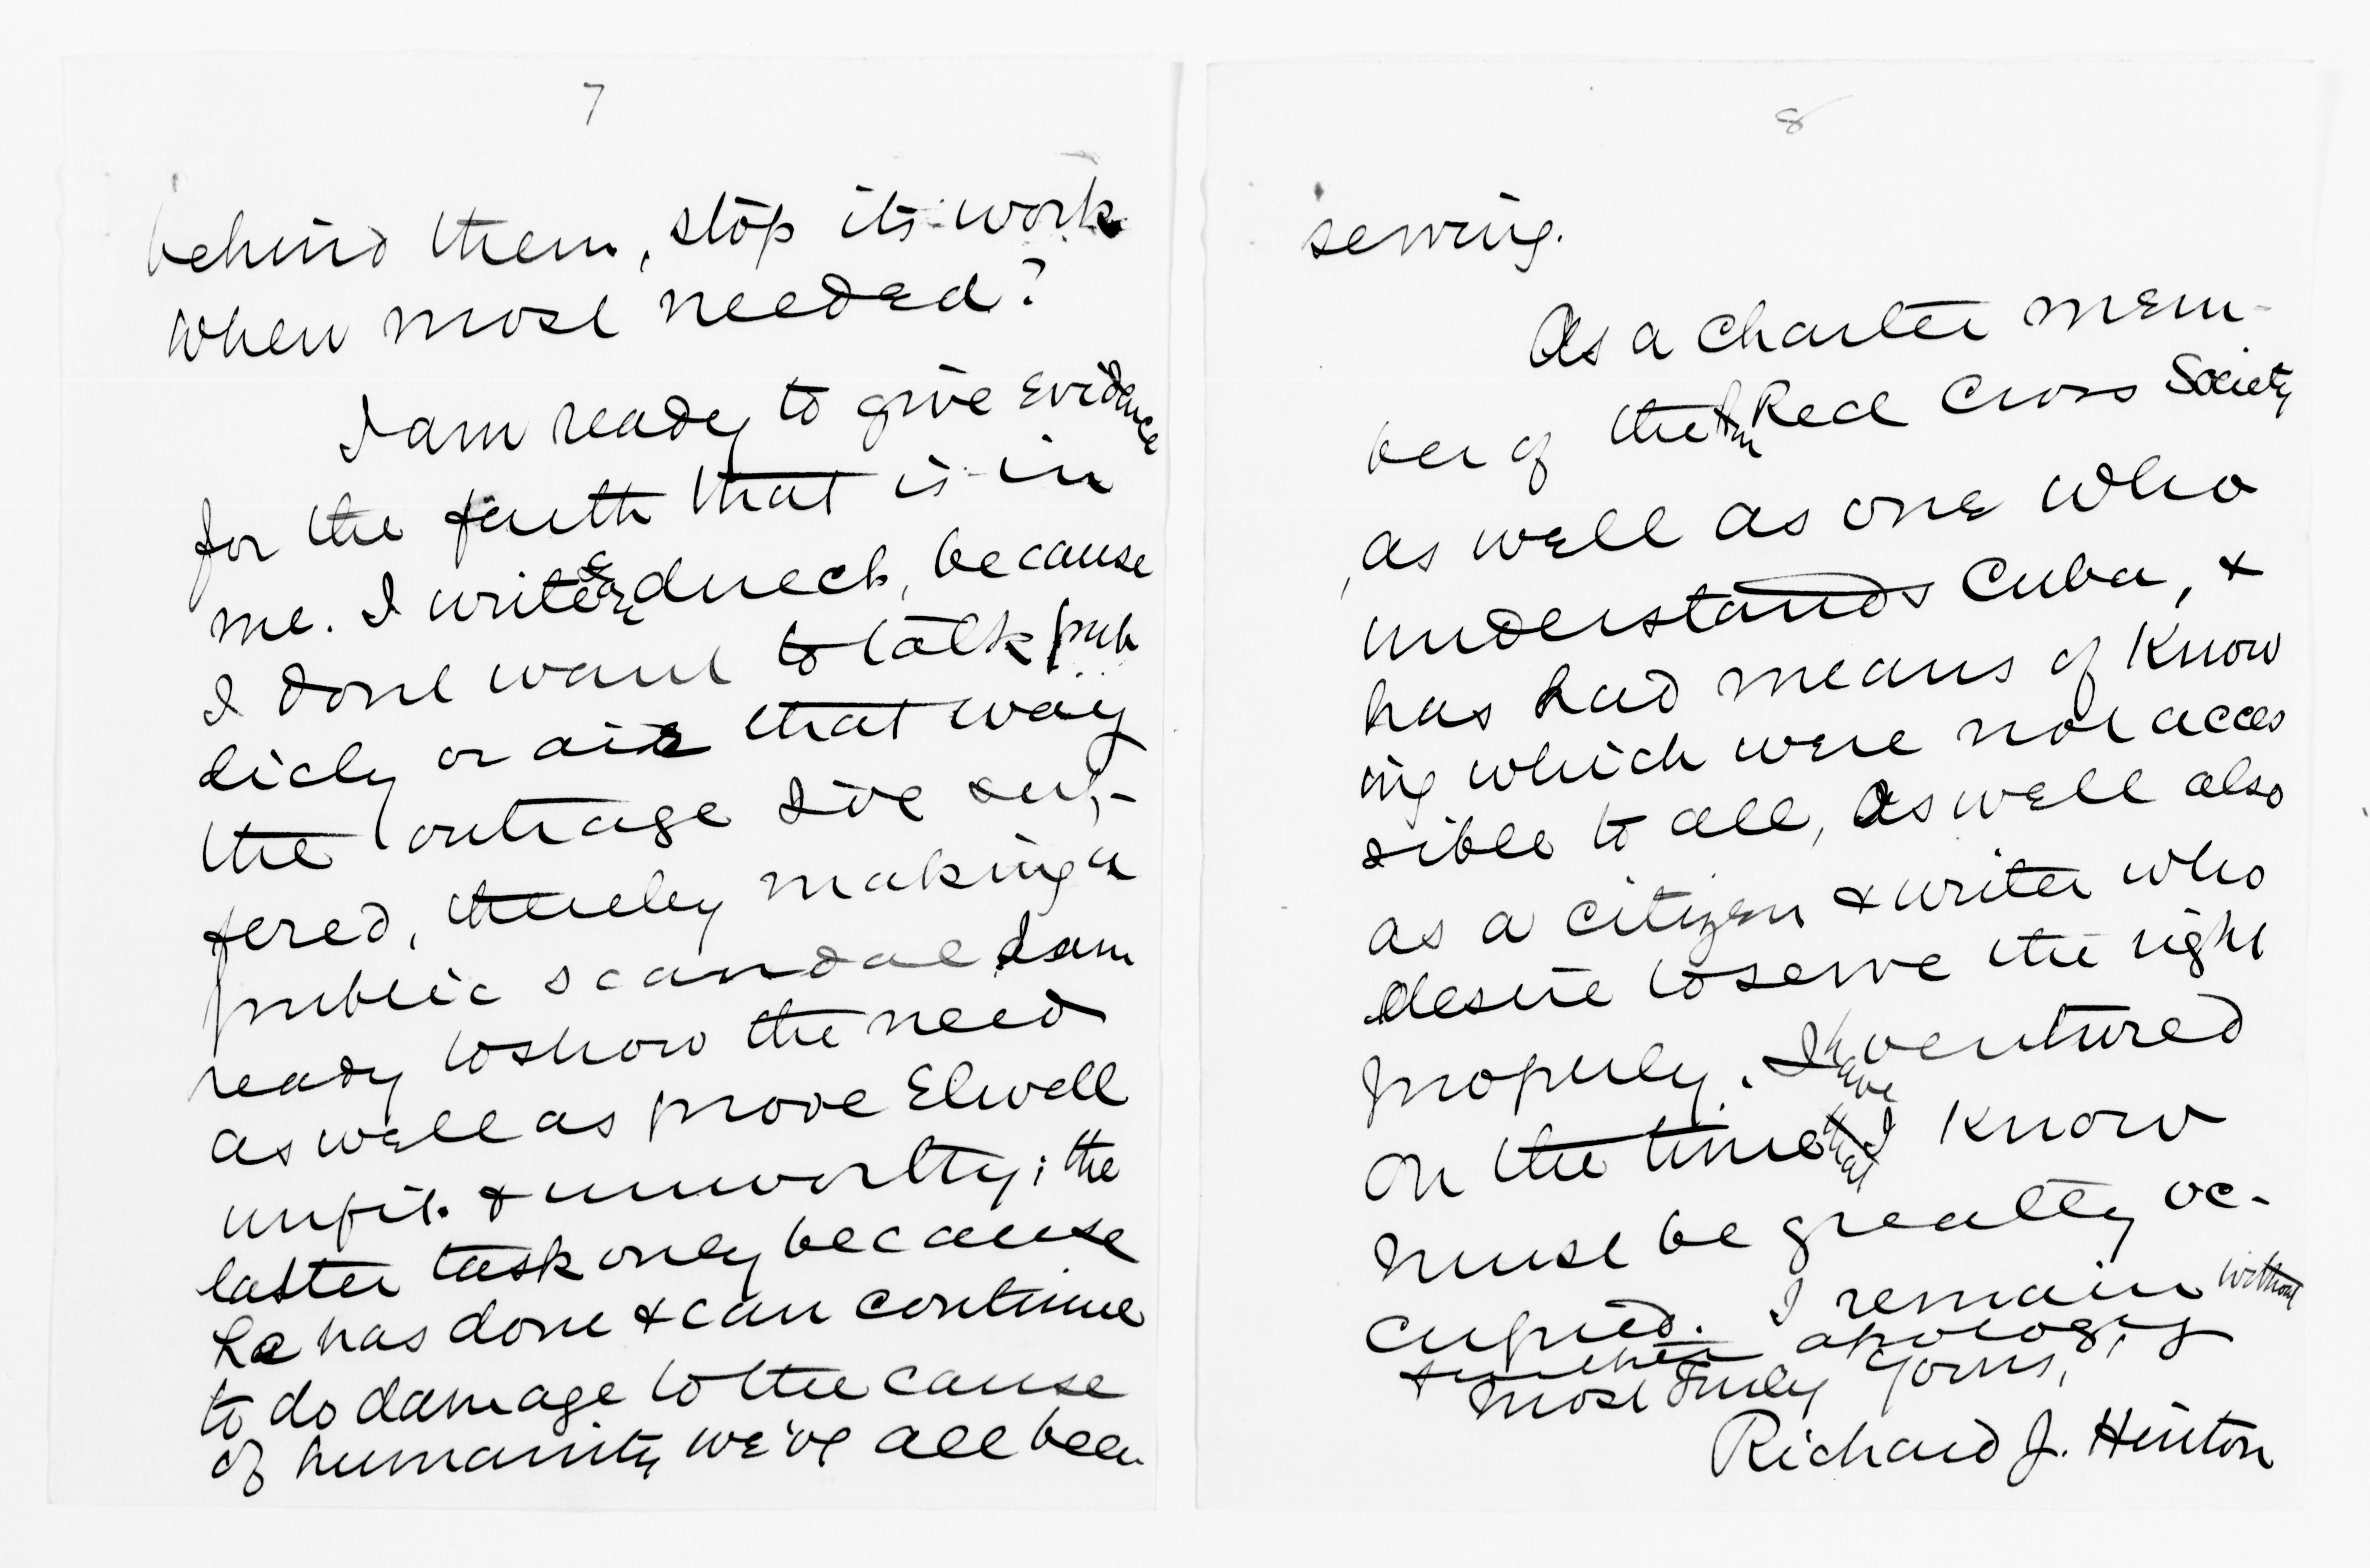 7
behind them, stop its work
when most needed?
I am ready to give evidence
for the faith that is in
me. I write direct, because
I dont want to talk pub
licly or air that way
the outrage I've suf-
fered, thereby making a
public scandal. I am
ready to show the need
as well as prove Elwell
unfit & unworthy; the
latter task only because
he has done & can continue
to do damage to the cause
of humanity we've all been
8
serving.
As a charter mem-
ber of the Am Red Cross Society
as well as one who
understands Cuba, &
has had means of Know
ing which were not acces
sible to all, as well also
as a citizen & writer who
desire to serve the right
properly. I have ventured
on the time that I Know
must be greatly oc-
cupied. I remain without
further apology,
most truly yours,
Richard J. Hinton